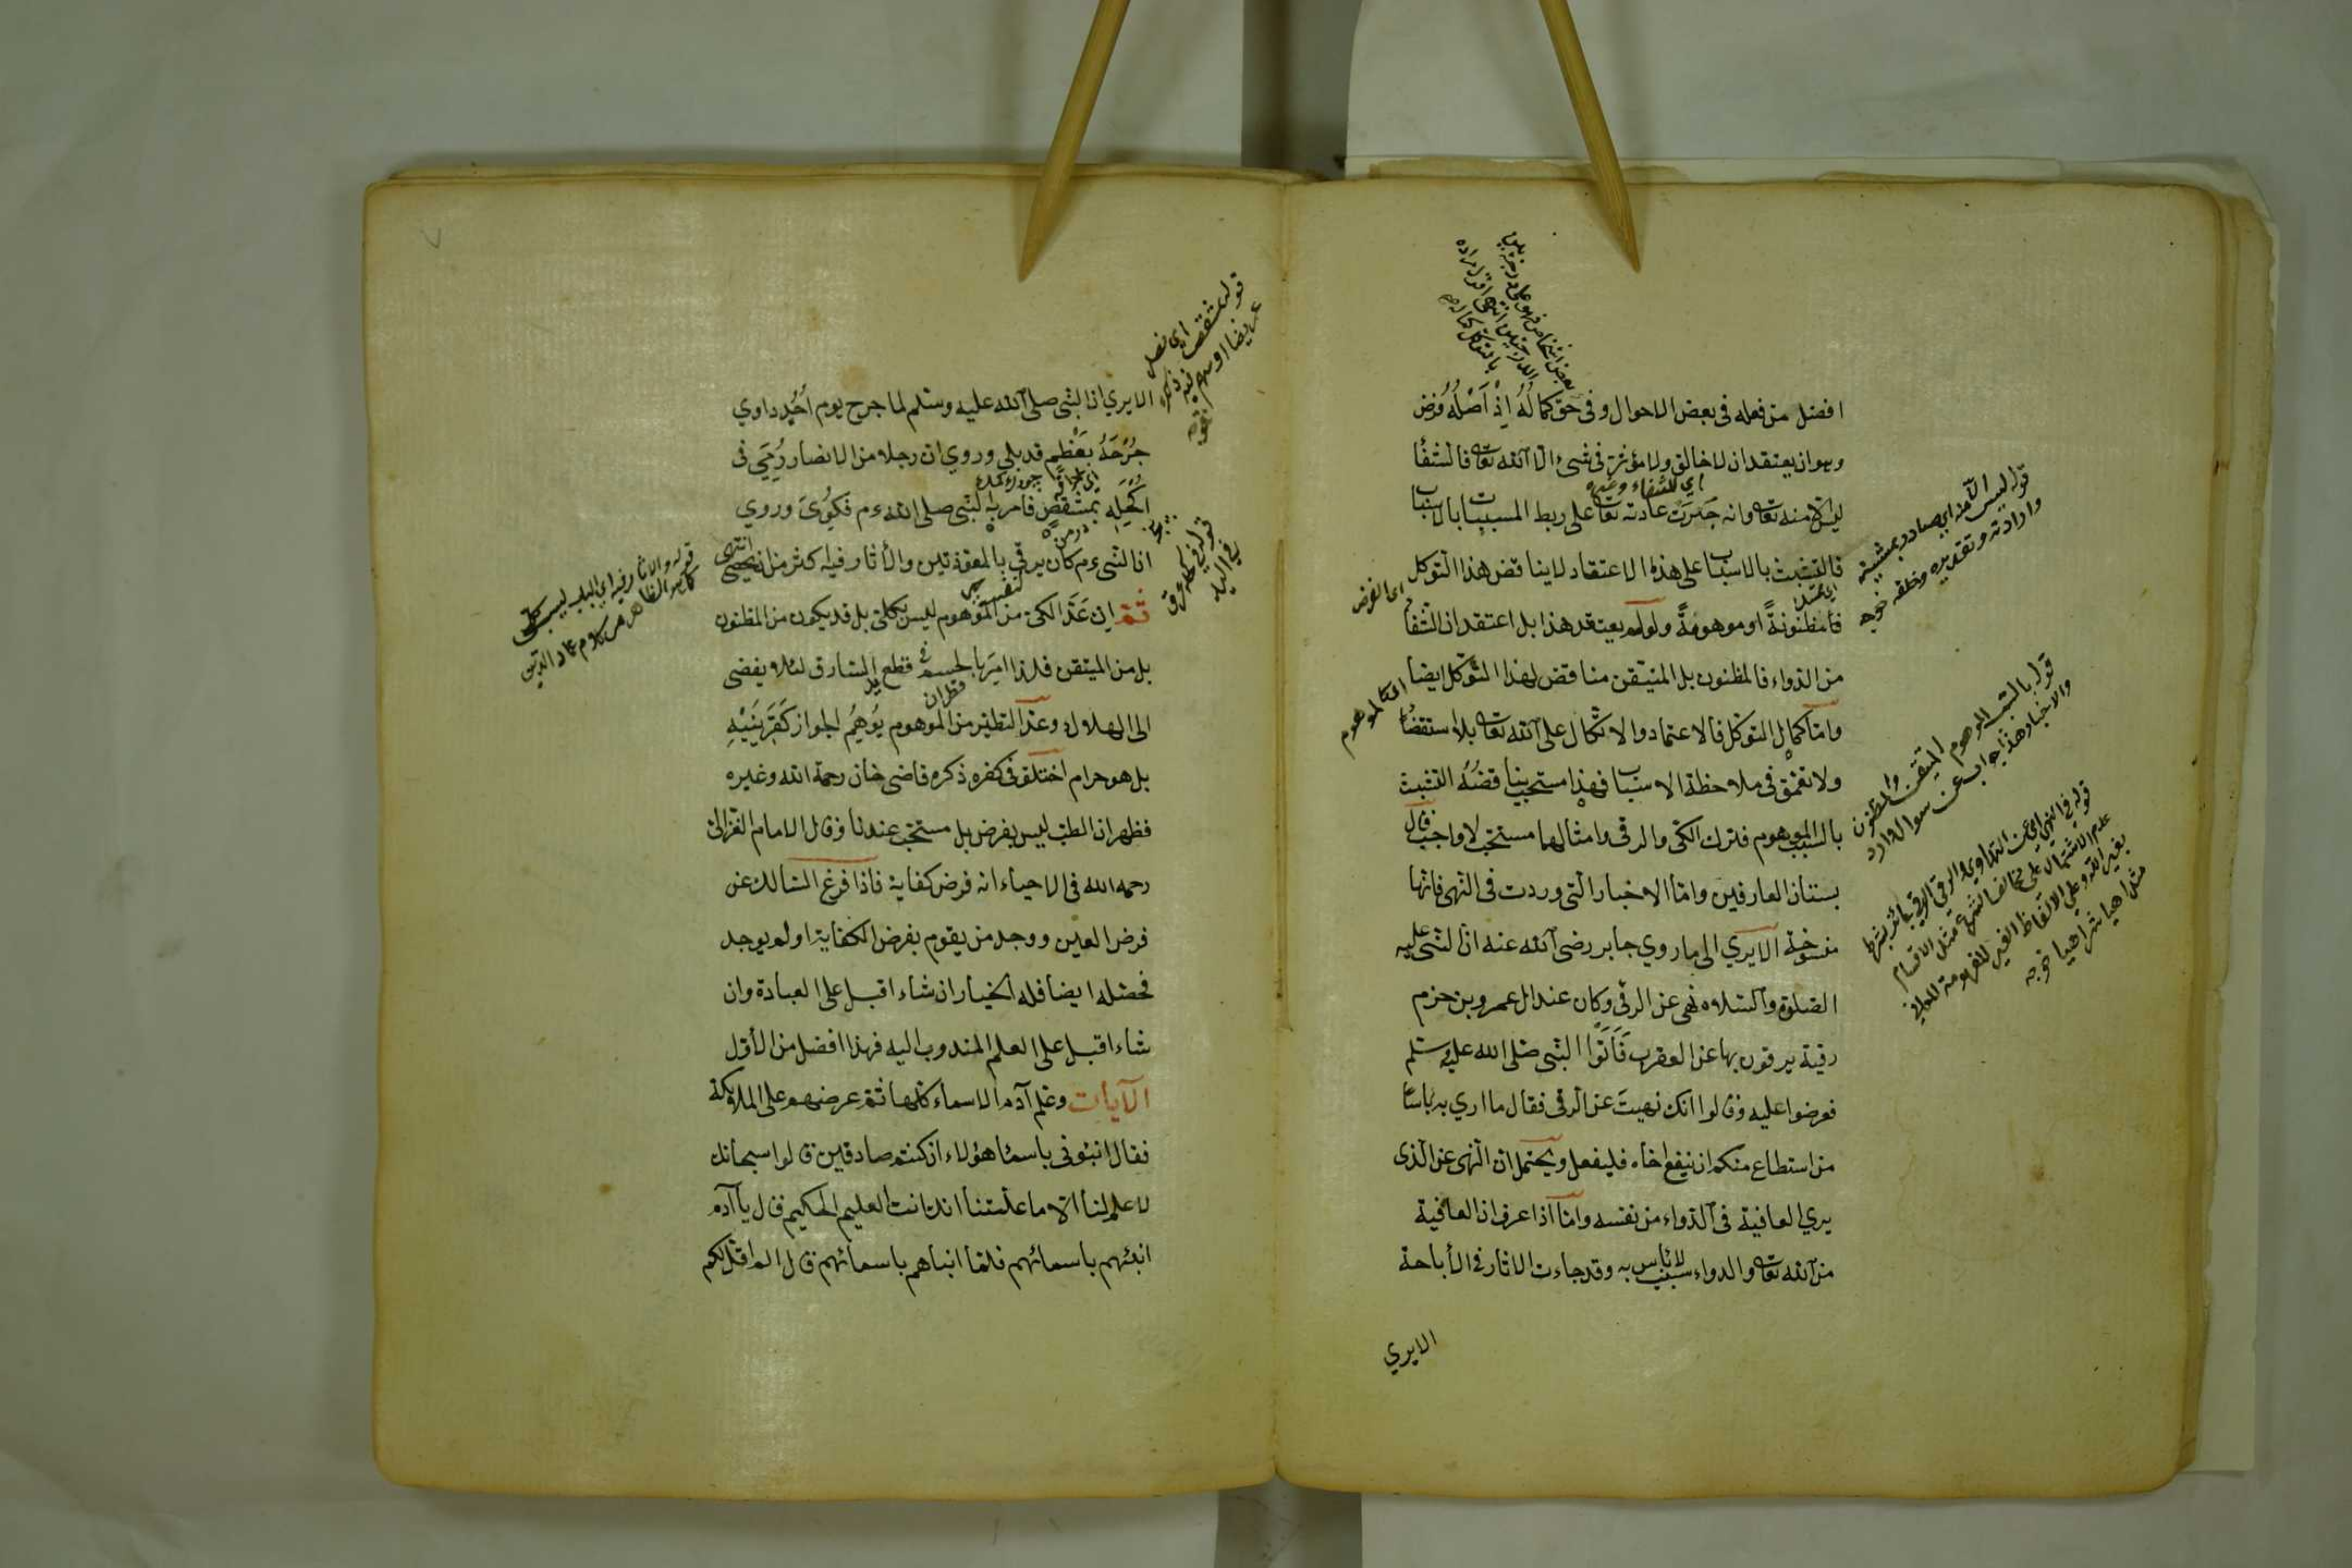 افضل من فعله فى بعض الاحوال وفى حق كماله اذ اصله فرض
وهو ان يعتقد ان لا خالق ولا مؤثر فى شىء الا الله تعالى فالشفا
اى للشفاء وغيره
ليس الا منه تعالى وانه جرت عادته تعالى على ربط المسببات بالاسباب
فالتشبث بالاسباب على هذا الاعتقاد لا يناقض هذا التوكل
مظنونة او موهومة ولو لم يعتقد هذا بل اعتقد ان الشفا
من الدواء فالمظنون بل المتيقن مناقض لهذا التوكل ايضا
واما كمال التوكل فالاعتماد والاتكال على الله تعالى بلا استقضا
ولا تعمق فى ملاحظة الاسباب فهذا مستحب يناقضه التشبث
بالسبب الموهوم فترك الكى والرقى وامثالها مستحب لا واجب قال
بستان العارفين واما الاخبار التى وردت فى النهى فانها
منسوخة الا يرى الى ما روي جابر رضى الله عنه ان النبى عليه
الصلوة والسلام نهى عن الرقى وكان عند ال عمرو بن حزم
رقية يرقون بها عن العقرب فأتوا النبى صلى الله عليه وسلم
فعرضوا عليه وقالوا انك نهيت عن الرقى فقال ما ارى به باسا
من استطاع منكم ان ينفع اخاه فليفعل ويحتمل ان النهى عن الذى
يرى العافية فى الدواء من نفسه واما اذا عرف ان العافية
من الله تعالى والدواء سبب لا باس به وقد جاءت الاثار فى الأباحة
الا يري
قوله ليس الا منه اى صادر بمشيته
وارادته وتقديره وخلقه خوجه
قوله بالسبب الموهوم المتيقن والمظنون
والاخبار هذا جواب عن سوال وارد
اى الفرض
اى كالموهوم
الا يري ان النبى صلى الله عليه وسلم لما جرح يوم أحد داوي
جرحه بعظم قد بلي وروي ان رجلا من الانصار رمي فى
اكحله بمشقص فامر به النبى صلى الله ءم فكوى وروي
ان النبى ءم كان يرقى بالمعوذتين والأثار فيه اكثر من ان يحصى انتهى
ثم ان عد الكى من الموهوم ليس بكلى بل قد يكون من المظنون
بل من المتيقن فلذا امر بالحسم فى قطع يد السارق لئلا يفضى
الى الهلاك وعد التطير من الموهوم يوهم الجواز كقرينيه
بل هو حرام اختلق فى كفره ذكره قاضى خان رحمة الله وغيره
فظهر ان الطب ليس بفرض بل مستحب عندنا وقال الامام الغزالى
رحمه الله فى الاحياء انه فرض كفاية فاذا فرغ السالك عن
فرض العين ووجد من يقوم بفرض الكفاية او لم يوجد
فحصله ايضا فله الخيار ان شاء اقبل على العبادة وان
شاء اقبل على العلم المندوب اليه فهذا افضل من الأول
الآيات وعلم آدم الاسماء كلها ثم عرضهم على الملائكة
فقال انبئونى باسماء هؤلاء ان كنتم صادقين قالوا سبحانك
لا علم لنا الا ما علمتنا انك انت العليم الحكيم قال يا آدم
انبئهم باسمائهم فلما انبأهم باسمائهم قال الم اقل لكم
قوله بمشقص اى نصل
قوله فى اكحله عرق
فى اليد
قوله والاثار فيه اى الباب ليس بكلى